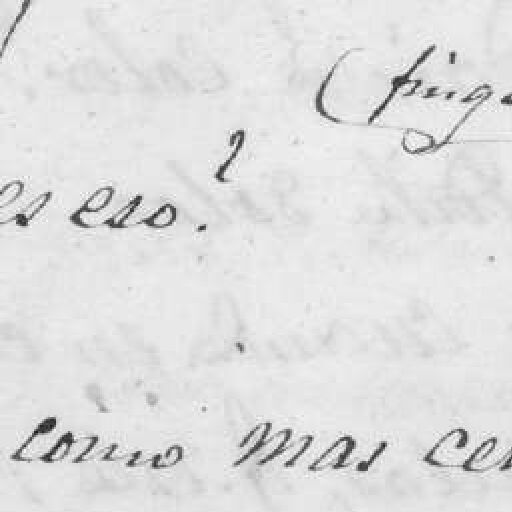 (finge
es eso?
como mas cer